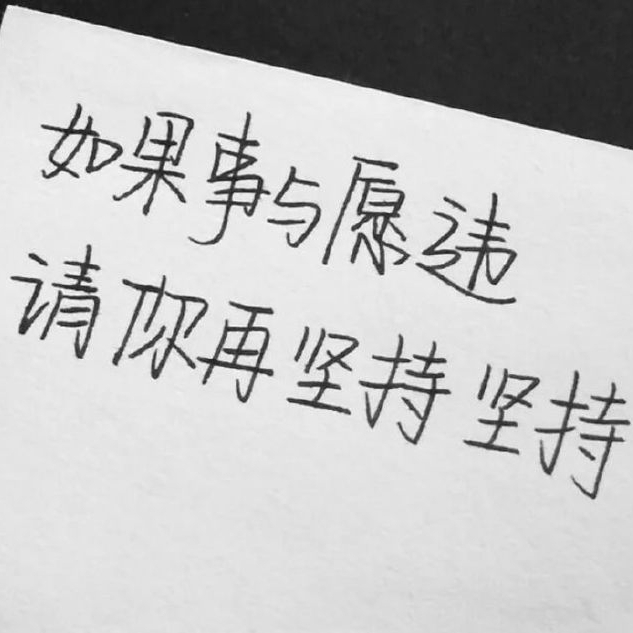 如果事与愿违
请你再坚持坚持